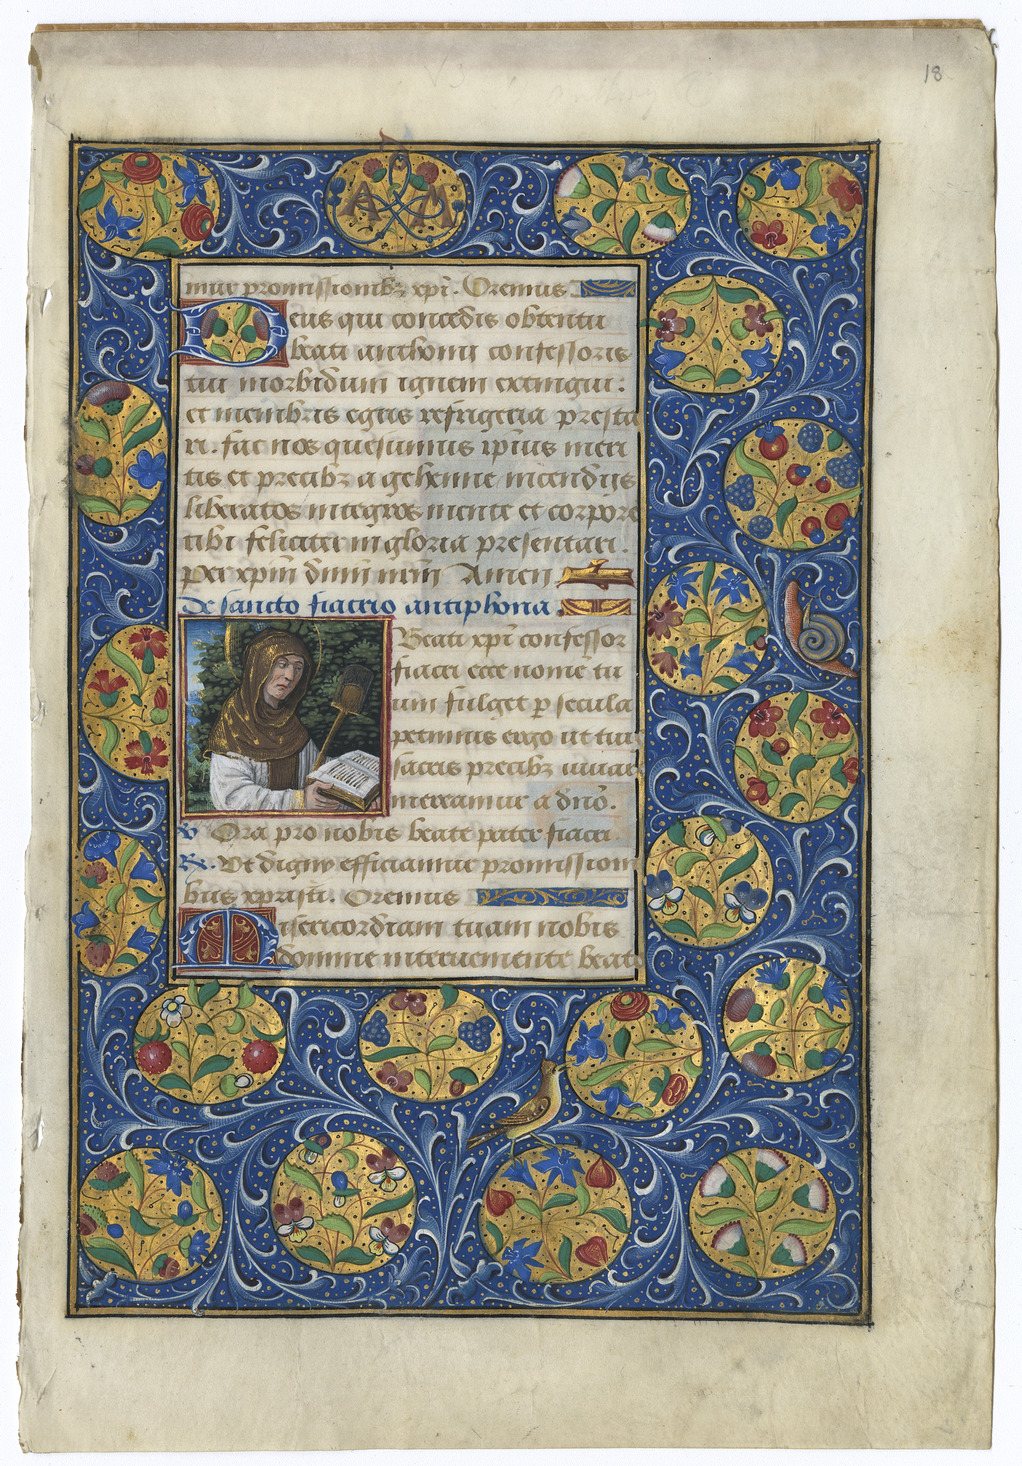 18
A M
mur promissionibꝫ xpī. Oremus
Deus qui concedis obtentu
beati anthonii confessoris
tui morbidum ignem extingui:
et membris egris refrigeria presta
ri. fac nos quesumus ip̄ius meri
tis et precibꝫ a gehenne incendijs
liberatos integros mente et corpore
tibi feliciter in gloria presentari.
Per xp̄m dn̄m nr̄m Amen
de sancto fiacrio antiphona.
Beati xpī confessor
fiacri ecce nome tu
um fulget p secula
petimus ergo ut tuis
sacris precibꝫ iuuari
mereamur a dn̄o.
v Ora pro nobis beate pater fiacri
Rx. Vt digni efficiamur promissioni
bus xpristi. Oremus
Misericordiam tuam nobis
domine interueniente beato